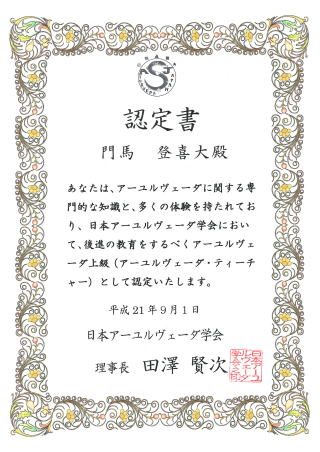 認定書
門馬 登喜大殿
あなたは、アーユルヴェーダに関する専
門的な知識と、多くの体験を持たれてお
り、日本アーユルヴェーダ学会におい
て、後進の教育をするべくアーユルヴェ
ーダ上級（アーユルヴェーダ・ティーチ
ャー）として認定いたします。
平成21年9月1日
日本アーユルヴェーダ学会
理事長 田澤 賢次